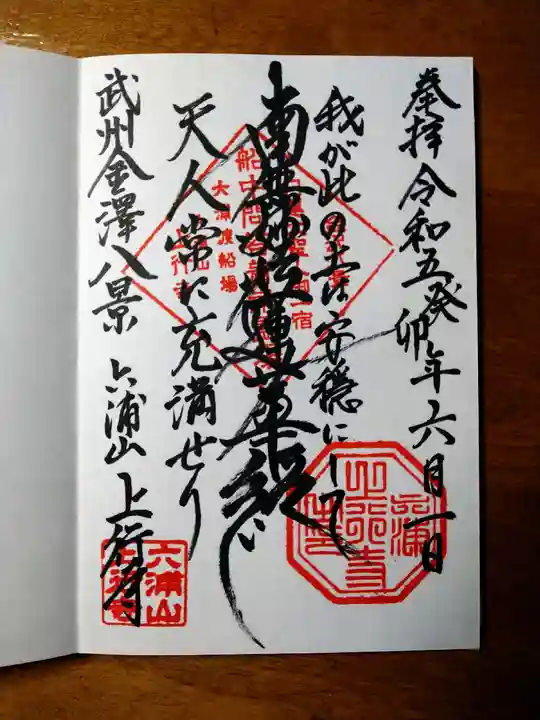 奉拝 令和五癸卯年六月一日
我が此の土は安穏にして
南無妙法蓮華経
天人常に充満せり
武州金澤八景 六浦山 上行寺
船中問答
六浦渡船場
六浦山
上行寺
六浦山
上行寺